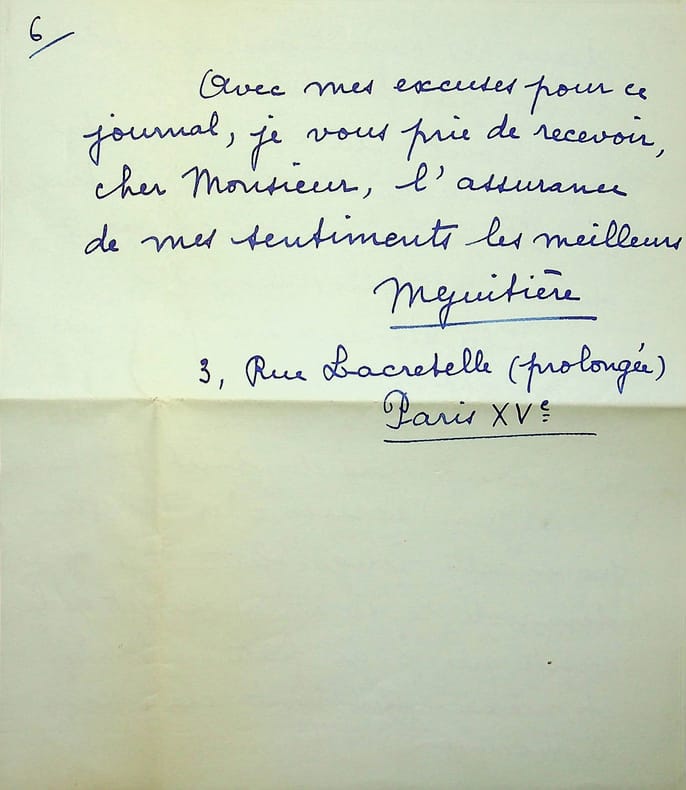 6
Avec mes excuses pour ce
journal, je vous prie de recevoir,
cher Monsieur, l'assurance
de mes sentiments les meilleurs
MGuitière
3, Rue Lacretelle (prolongée)
Paris XVe